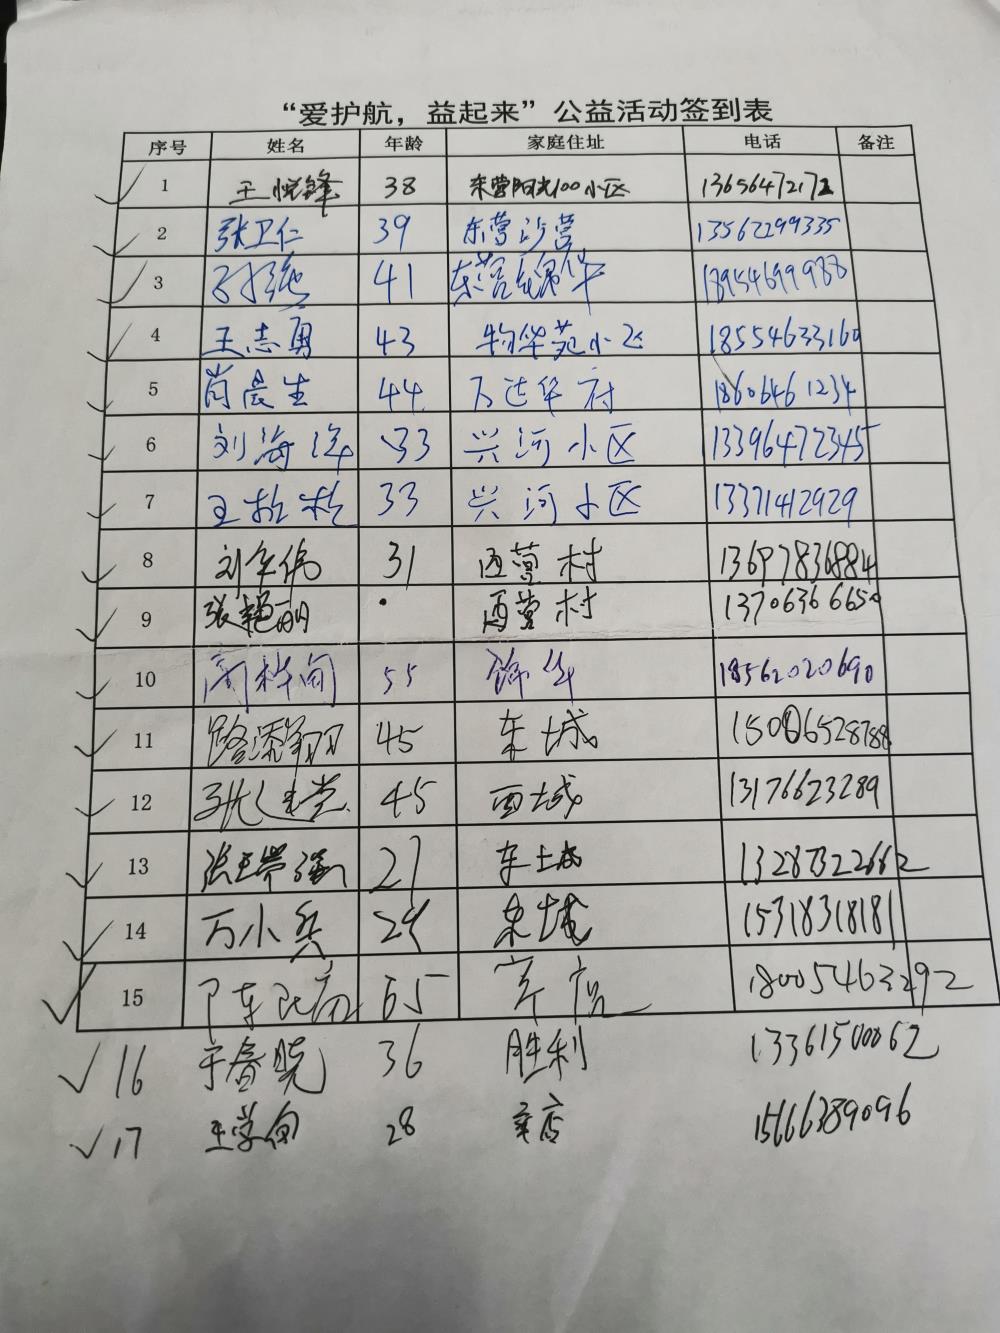 “爱护航，益起来”公益活动签到表
序号 姓名 年龄 家庭住址 电话 备注
1 王悦锋 38 东营阳光100小区 13656472172
2 张卫仁 39 东营沙营 13562299335
3 41 东营 18954699988
4 王志勇 43 物华苑小区 18554633160
5 肖晨生 44 万达华府 18606461234
6 刘海洋 33 兴河小区 13396472345
7 王松松 33 兴河小区 13371412929
8 刘 伟 31 西营村 13697836884
9 张艳丽 西营村 13706366650
10 55 锦华 18562020690
11 路添翔 45 东城 15006528788
12 45 西城 13176623289
13 张 强 27 东城 13287322662
14 万小兵 29 东城 15318318181
15 65 18005463292
16 于春晓 36 胜利 13361500062
17 王学 28 辛店 15666389096